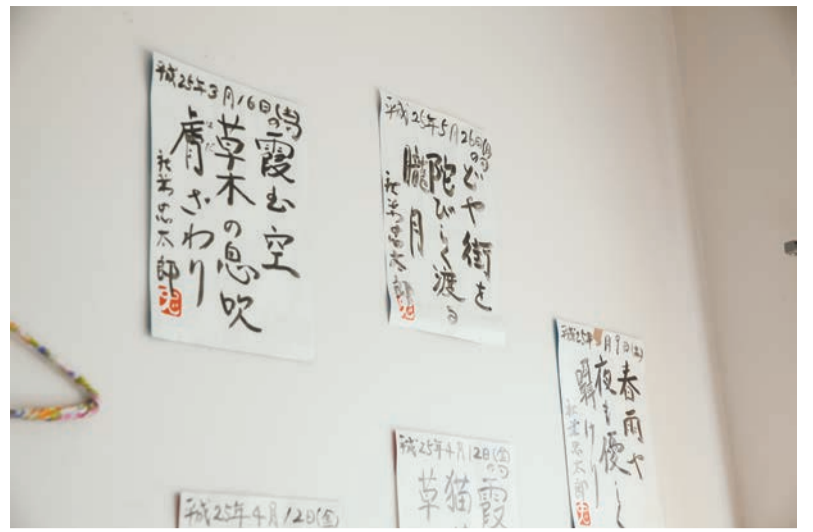 平成25年3月16日(土)の
霞む空
草木の息吹
膚ざわり
はだ
忠太郎
平成25年5月26日(日)の
どや街を
陀びしく渡る
朧月
忠太郎
平成25年 月9日(土)
春雨や
夜も優しく
囁けり
忠太郎
平成25年4月12日(金)の
霞
猫
草
平成25年4月12日(金)